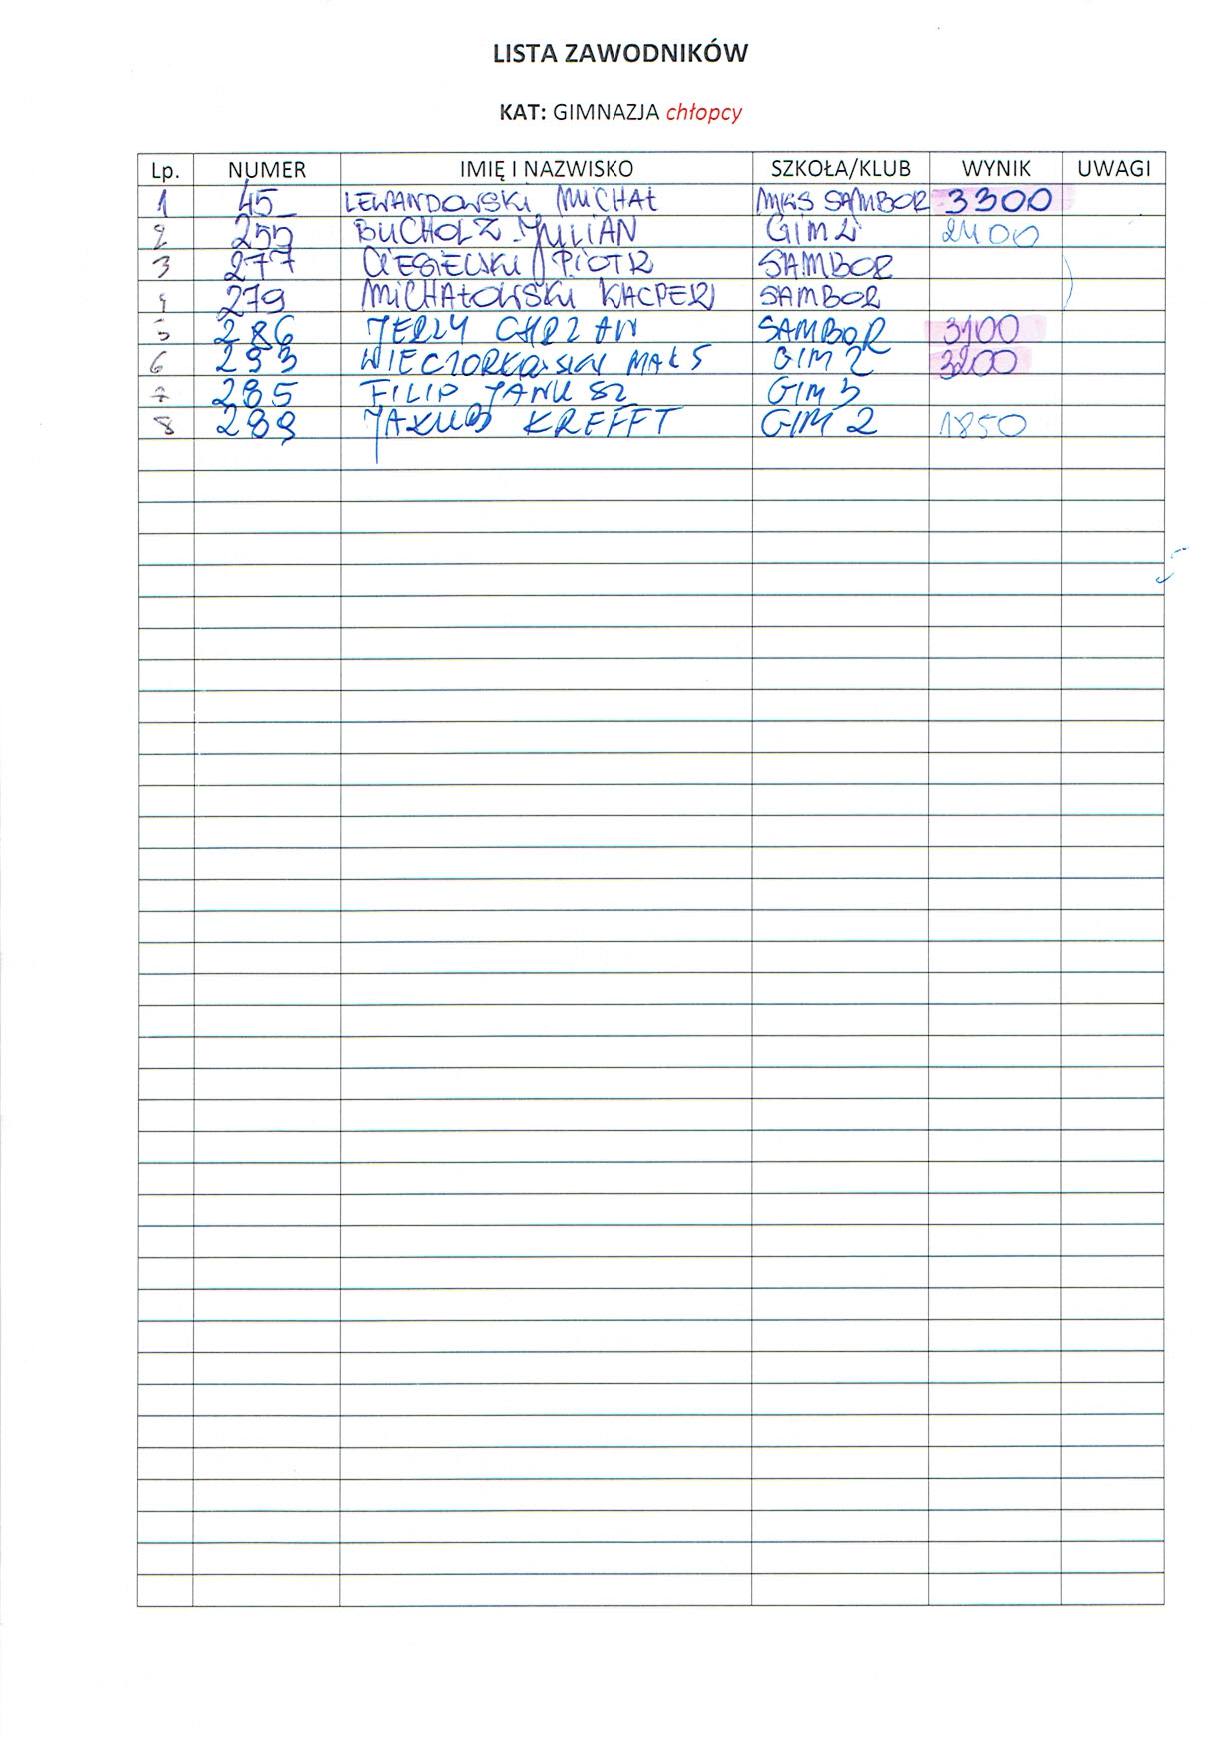 LISTA ZAWODNIKÓW
KAT: GIMNAZJA chłopcy
Lp. NUMER IMIĘ I NAZWISKO SZKOŁA/KLUB WYNIK UWAGI
1 45 LEWANDOWSKI MICHAŁ MKS SAMBOR 3300
2 255 BUCHOLZ JULIAN GIM 2 2400
3 277 CIESIELSKI PIOTR SAMBOR
4 279 MICHAŁOWSKI KACPER SAMBOR
5 286 JERZY CHRZAN SAMBOR 3100
6 293 GIM 2 3200
7 285 FILIP JANUSZ GIM 3
8 JAKUB KREFFT GIM 2 1850